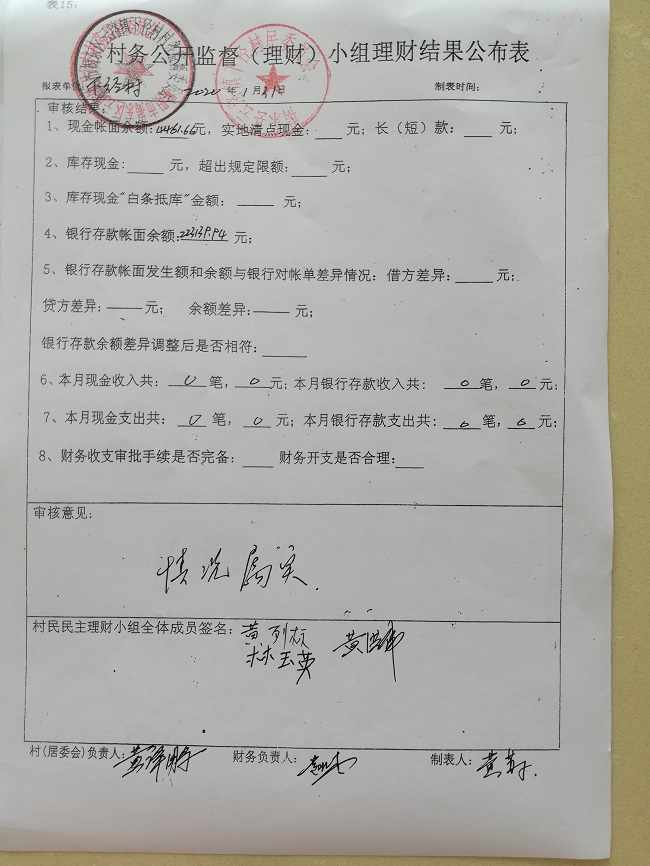 表15：
村务公开监督（理财）小组理财结果公布表
报表单位： 2020 年 1 月 21 日 制表时间：
审核结果：
1、现金帐面余额:4461.66元，实地清点现金：____元；长（短）款：____元；
2、库存现金:____元，超出规定限额:____元；
3、库存现金"白条抵库"金额：____元；
4、银行存款帐面余额:223139.94元；
5、银行存款帐面发生额和余额与银行对帐单差异情况：借方差异:____元；
贷方差异:——元； 余额差异:——元；
银行存款余额差异调整后是否相符:____
6、本月现金收入共：0笔，0元；本月银行存款收入共：0笔，0元；
7、本月现金支出共：0笔，0元；本月银行存款支出共：0笔，0元；
8、财务收支审批手续是否完备：____ 财务开支是否合理:____
审核意见：
情况属实.
村民民主理财小组全体成员签名：黄 黄
林玉英
村(居委会)负责人：黄 财务负责人： 制表人：黄